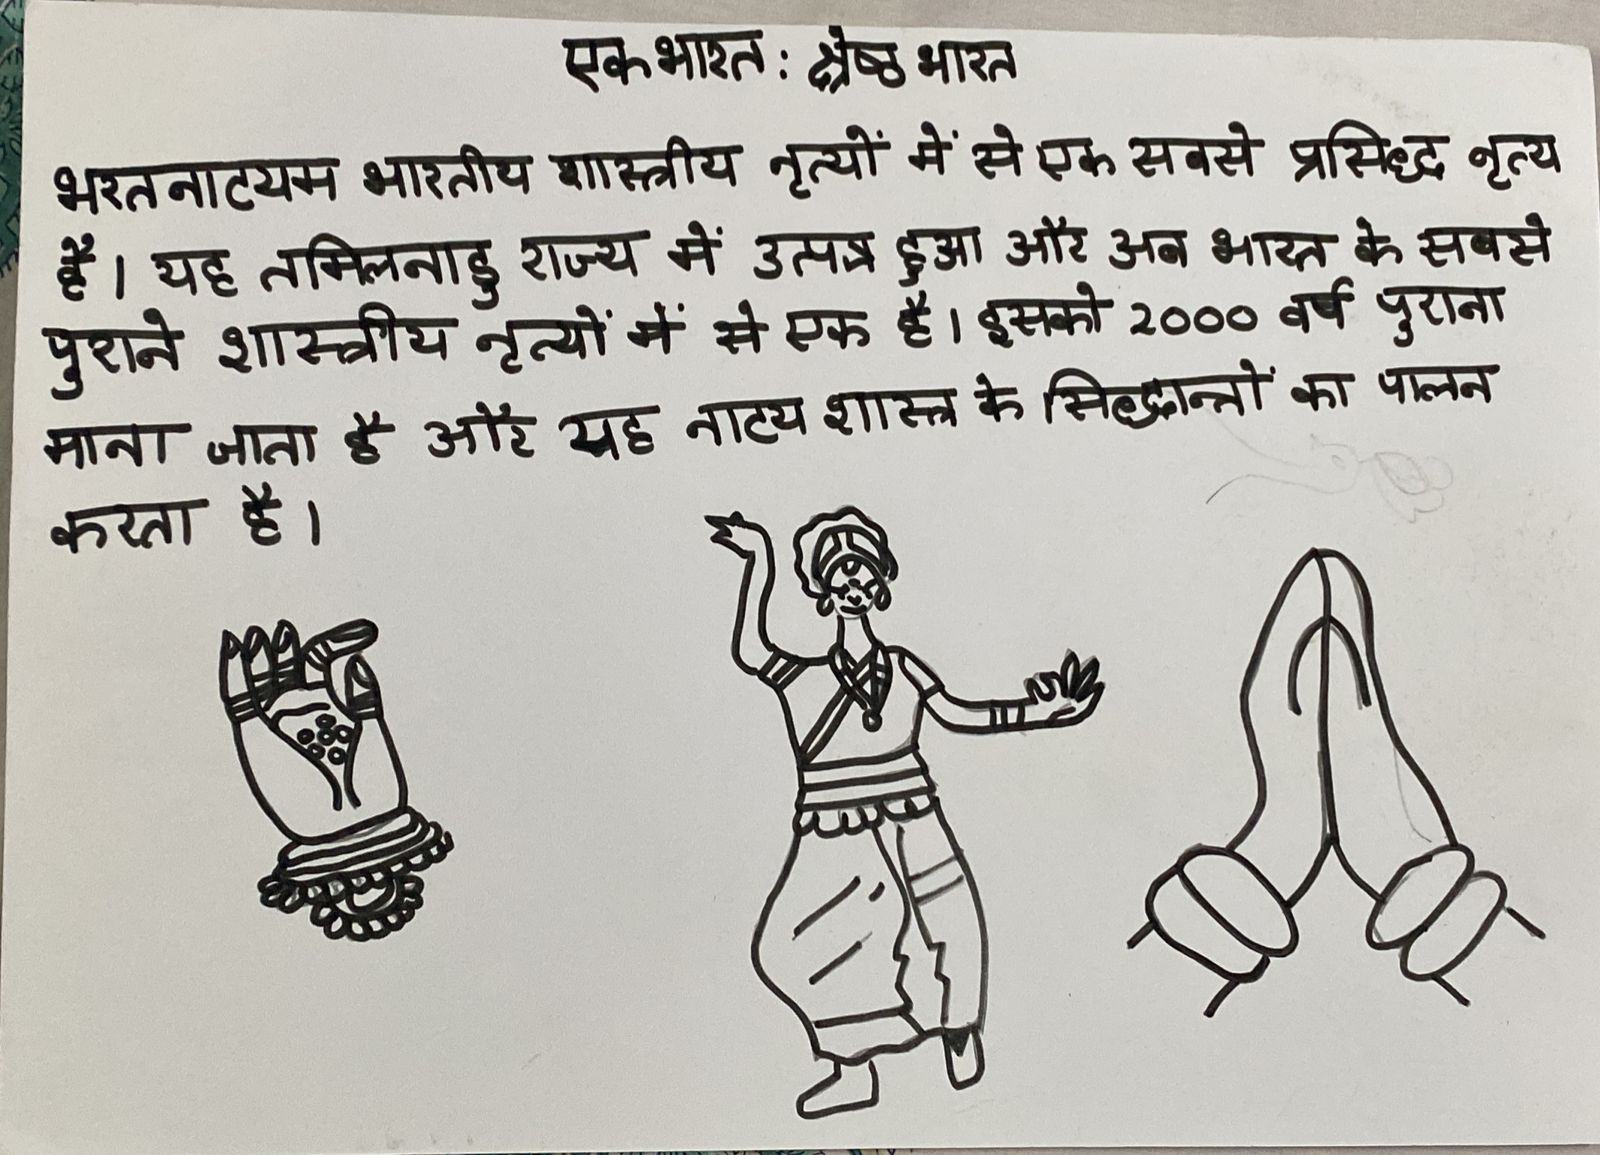 एक भारत : श्रेष्ठ भारत
भरतनाटयम भारतीय शास्त्रीय नृत्यों में से एक सबसे प्रसिद्ध नृत्य
है। यह तमिलनाडु राज्य में उत्पन्न हुआ और अब भारत के सबसे
पुराने शास्त्रीय नृत्यों में से एक है। इसको 2000 वर्ष पुराना
माना जाता है और यह नाटय शास्त्र के सिद्धान्तों का पालन
करता है।